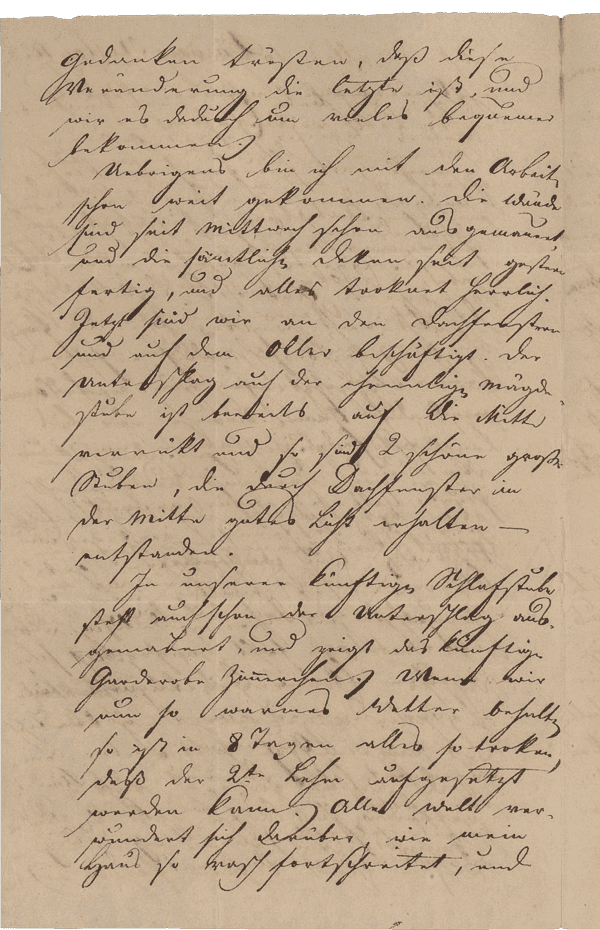 Gedanken trösten, daß diese
Veränderung die letzte ist, und
wir es dadurch um vieles bequemer
bekommen.
Uebrigens bin ich mit den Arbeit
schon weit gekommen. Die Wände
sind seit Mittwoch schon ausgemauert,
und die sämtlichen Deken seit gestern
fertig, und alles troknet herrlich.
Jetzt sind wir an den Dachfenstern
und auf dem Oller beschäftigt. Der
Unterschlag auf der ehemaligen Mägde
stube ist bereits auf die Mitte
verrükt und so sind 2 schöne große
Stuben, die durch Dachfenster in
der Mitte gutes Licht erhalten —
entstanden.
In unserer künftigen Schlafstube
steht auch schon der Unterschlag aus-
gemauert, und zeigt das künftige
Garderobe Zimmerchen. Wenn wir
nun so warmes Wetter behalten
so ist in 8 Tagen alles so troken,
daß der 2te Lehm aufgesetzt
werden kann. Alle Welt ver-
wundert sich darüber, wie mein
Haus so rasch fortschreitet, und